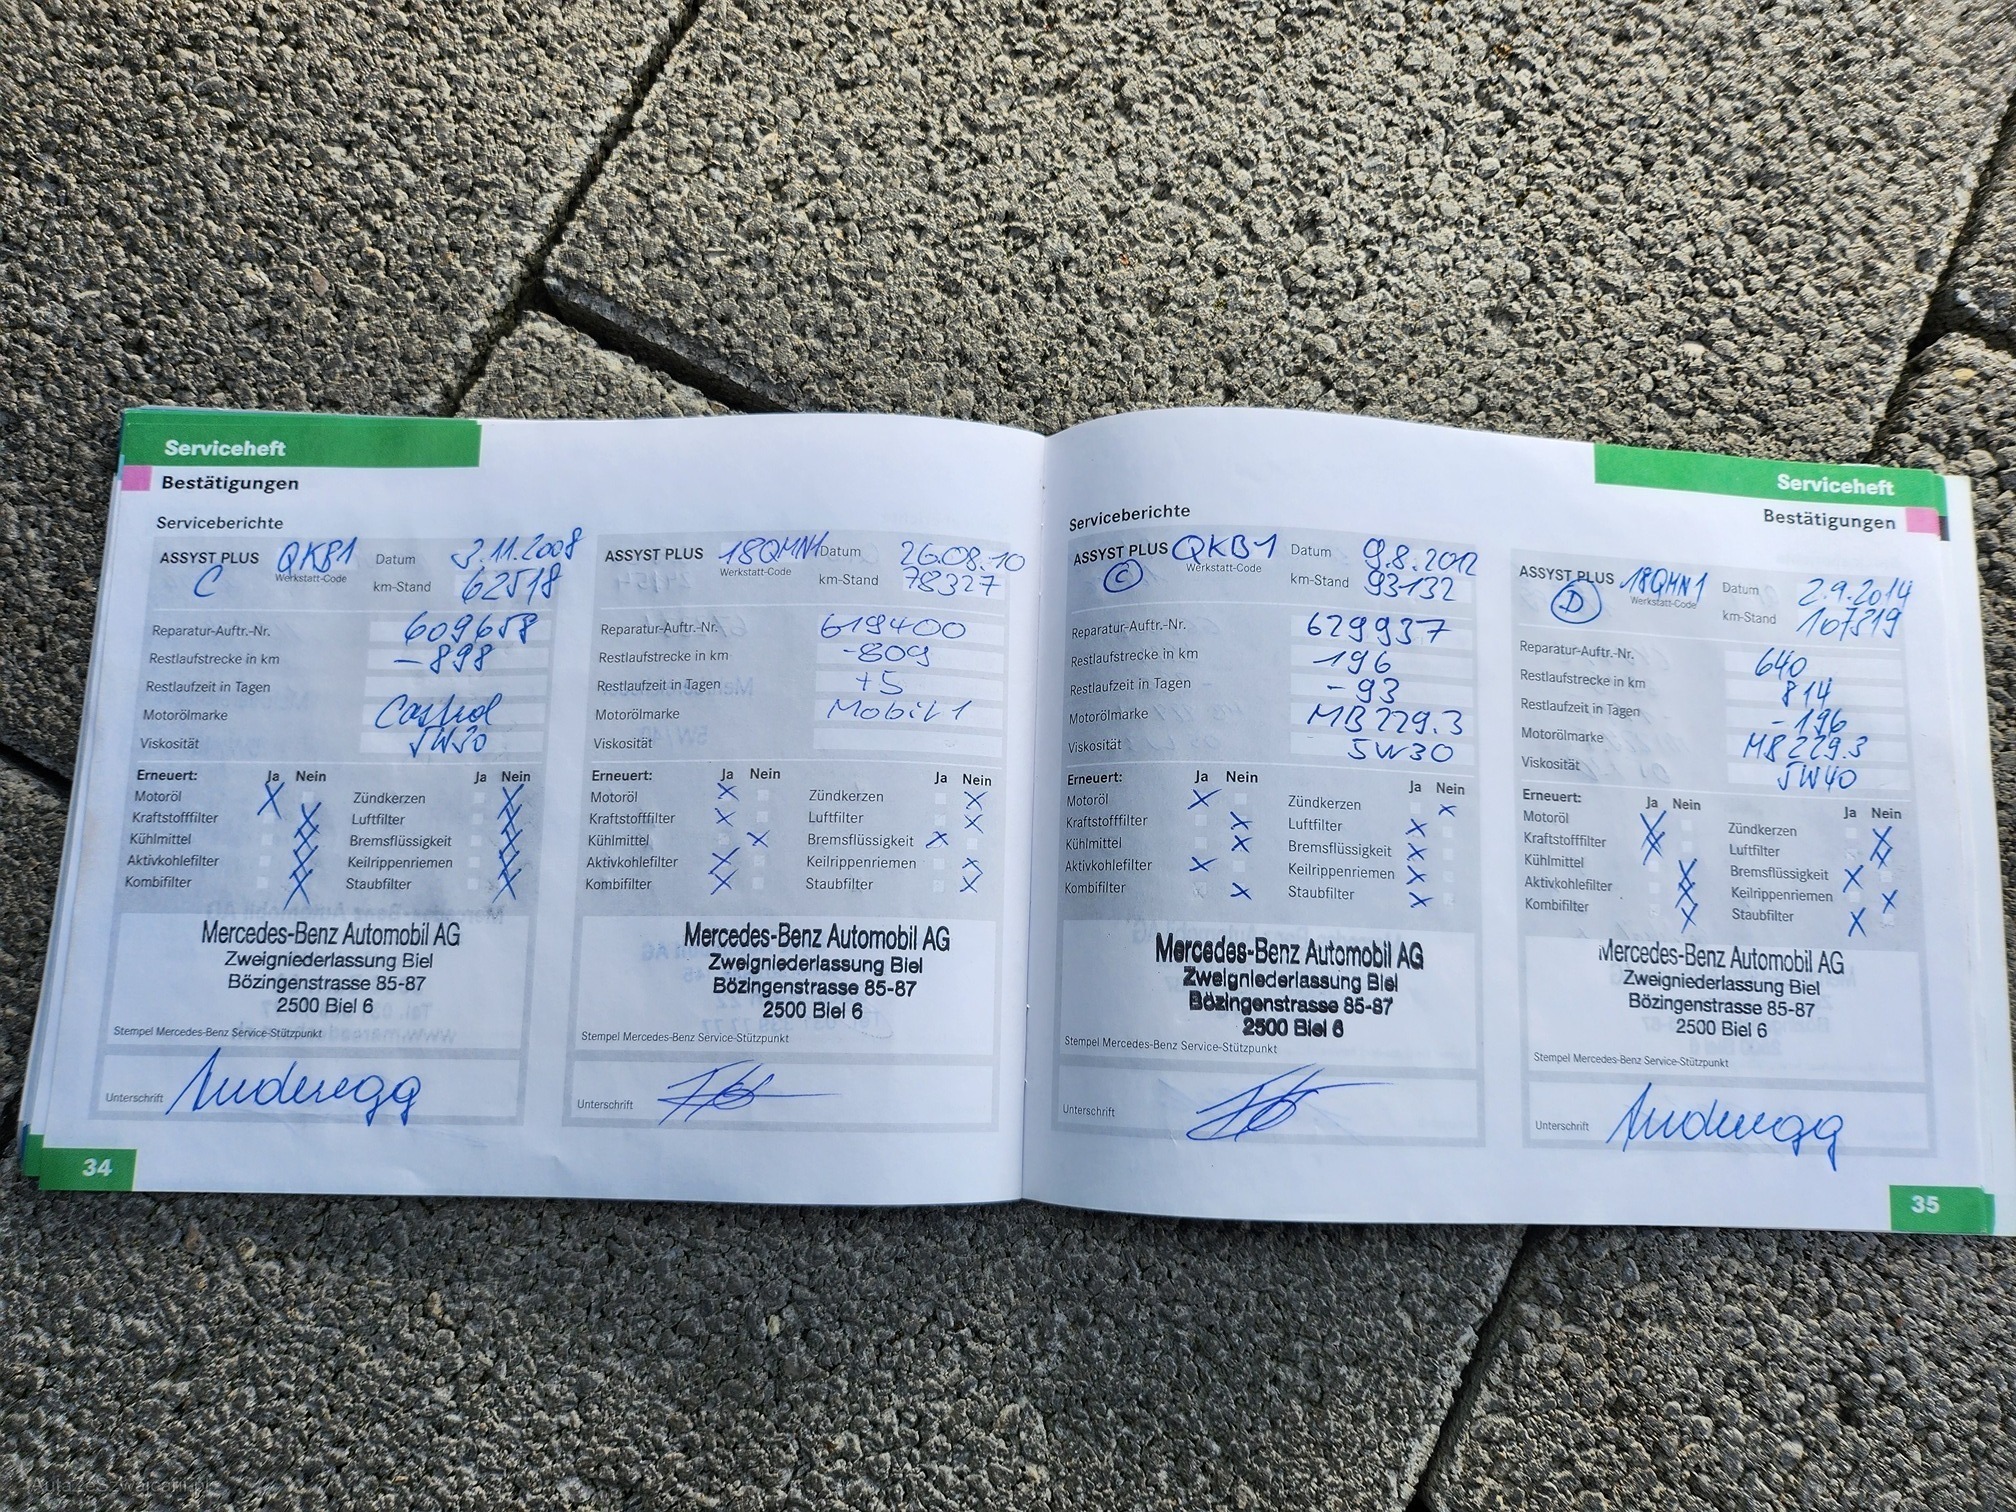 Serviceheft
Bestätigungen
Serviceberichte
ASSYST PLUS QKB1 Datum 3.11.2008
C Werkstatt-Code km-Stand 62518
Reparatur-Auftr.-Nr. 609658
Restlaufstrecke in km -898
Restlaufzeit in Tagen
Motorölmarke Castrol
Viskosität 5W30
Erneuert: Ja Nein Ja Nein
Motoröl X Zündkerzen X
Kraftstofffilter X Luftfilter X
Kühlmittel X Bremsflüssigkeit X
Aktivkohlefilter X Keilrippenriemen X
Kombifilter X Staubfilter X
Mercedes-Benz Automobil AG
Zweigniederlassung Biel
Bözingenstrasse 85-87
2500 Biel 6
Stempel Mercedes-Benz Service-Stützpunkt
Unterschrift Anderegg
34
ASSYST PLUS 18QMN1 Datum 26.08.10
Werkstatt-Code km-Stand 78327
Reparatur-Auftr.-Nr. 619400
Restlaufstrecke in km -809
Restlaufzeit in Tagen +5
Motorölmarke Mobil 1
Viskosität
Erneuert: Ja Nein Ja Nein
Motoröl X Zündkerzen X
Kraftstofffilter X Luftfilter X
Kühlmittel X Bremsflüssigkeit X
Aktivkohlefilter X Keilrippenriemen X
Kombifilter X Staubfilter X
Mercedes-Benz Automobil AG
Zweigniederlassung Biel
Bözingenstrasse 85-87
2500 Biel 6
Stempel Mercedes-Benz Service-Stützpunkt
Unterschrift
Serviceheft
Bestätigungen
Serviceberichte
ASSYST PLUS QKB1 Datum 9.8.2012
C Werkstatt-Code km-Stand 93132
Reparatur-Auftr.-Nr. 629937
Restlaufstrecke in km -196
Restlaufzeit in Tagen -93
Motorölmarke MB 229.3
Viskosität 5W30
Erneuert: Ja Nein Ja Nein
Motoröl X Zündkerzen X
Kraftstofffilter X Luftfilter X
Kühlmittel X Bremsflüssigkeit X
Aktivkohlefilter X Keilrippenriemen X
Kombifilter X Staubfilter X
Mercedes-Benz Automobil AG
Zweigniederlassung Biel
Bözingenstrasse 85-87
2500 Biel 6
Stempel Mercedes-Benz Service-Stützpunkt
Unterschrift
ASSYST PLUS 18QMN1 Datum 2.9.2014
D Werkstatt-Code km-Stand 107819
Reparatur-Auftr.-Nr. 640
Restlaufstrecke in km 814
Restlaufzeit in Tagen -196
Motorölmarke MB 229.3
Viskosität 5W40
Erneuert: Ja Nein Ja Nein
Motoröl X Zündkerzen X
Kraftstofffilter X Luftfilter X
Kühlmittel X Bremsflüssigkeit X
Aktivkohlefilter X Keilrippenriemen X
Kombifilter X Staubfilter X
Mercedes-Benz Automobil AG
Zweigniederlassung Biel
Bözingenstrasse 85-87
2500 Biel 6
Stempel Mercedes-Benz Service-Stützpunkt
Unterschrift Anderegg
35